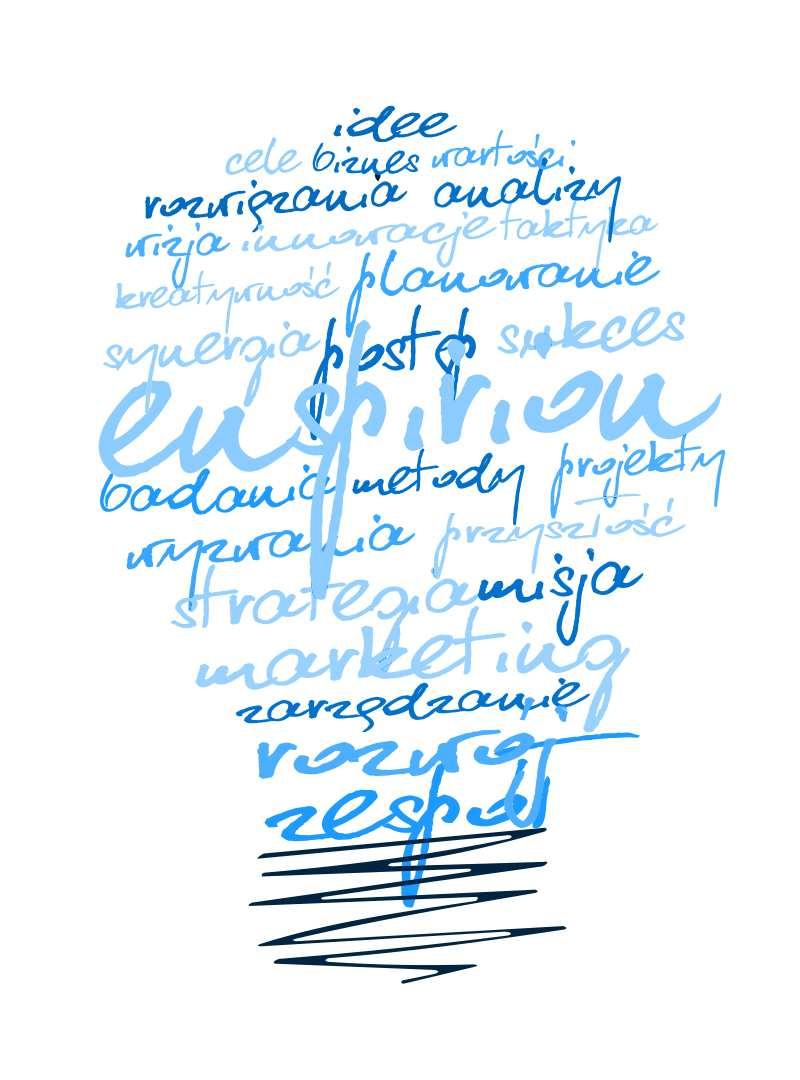 idee
cele biznes wartości
rozwiązania analizy
wizja innowacje taktyka
kreatywność planowanie
synergia postęp sukces
enspirion
badania metody projekty
wyzwania przyszłość
strategia misja
marketing
zarządzanie
rozwój
zespół